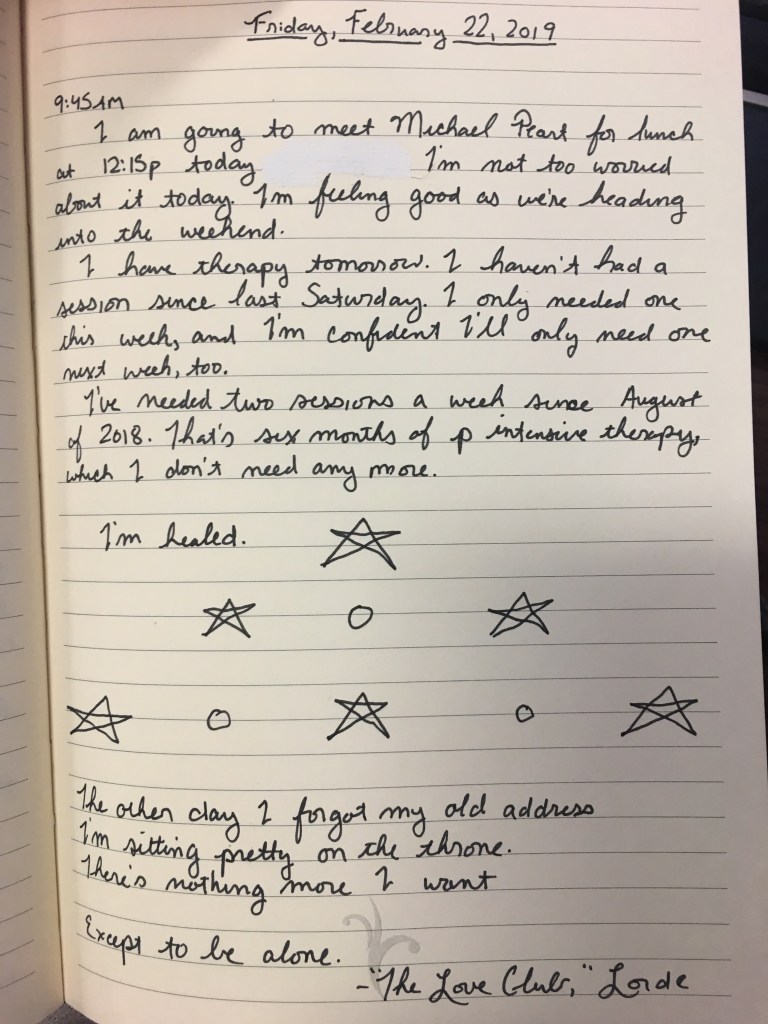 Friday, February 22, 2019
9:45AM
I am going to meet Michael for lunch
at 12:15p today I'm not too worried
about it today. I'm feeling good as we're heading
into the weekend.
I have therapy tomorrow. I haven't had a
session since last Saturday. I only needed one
this week, and I'm confident I'll only need one
next week, too.
I've needed two sessions a week since August
of 2018. That's six months of p intensive therapy,
which I don't need any more.
I'm healed.
The other day I forgot my old address
I'm sitting pretty on the throne.
There's nothing more I want
Except to be alone.
-"The Love Club," Lorde